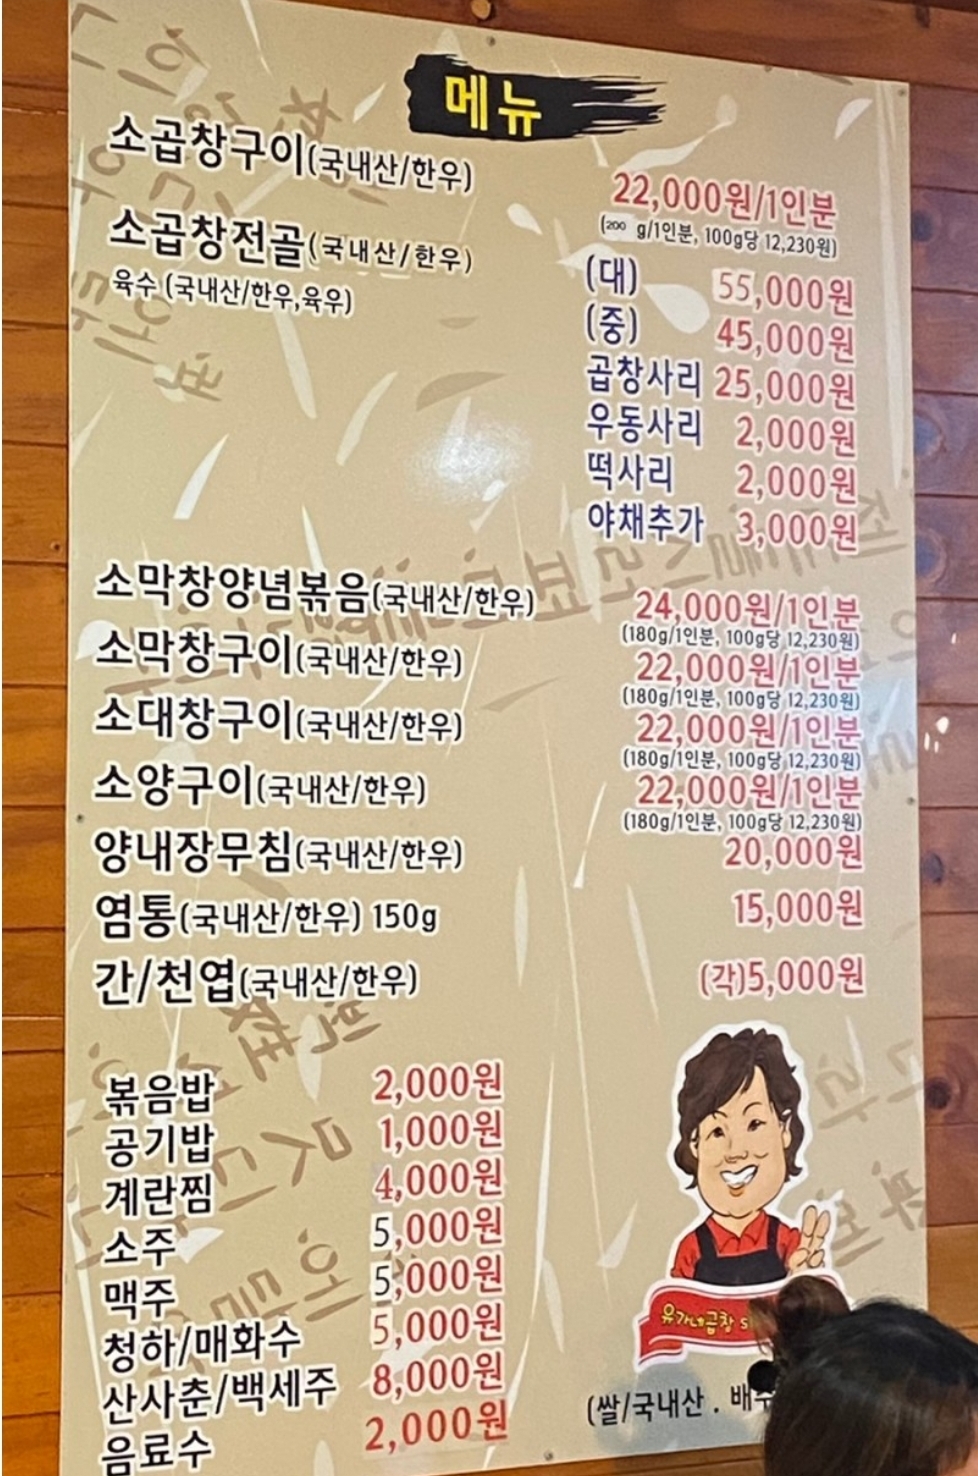 메뉴
소곱창구이(국내산/한우) 22,000원/1인분
(200 g/1인분, 100g당 12,230원)
소곱창전골(국내산/한우)
육수 (국내산/한우,육우)
(대) 55,000원
(중) 45,000원
곱창사리 25,000원
우동사리 2,000원
떡사리 2,000원
야채추가 3,000원
소막창양념볶음(국내산/한우) 24,000원/1인분
(180g/1인분, 100g당 12,230원)
소막창구이(국내산/한우) 22,000원/1인분
(180g/1인분, 100g당 12,230원)
소대창구이(국내산/한우) 22,000원/1인분
(180g/1인분, 100g당 12,230원)
소양구이(국내산/한우) 22,000원/1인분
(180g/1인분, 100g당 12,230원)
양내장무침(국내산/한우) 20,000원
염통(국내산/한우) 150g 15,000원
간/천엽(국내산/한우) (각)5,000원
볶음밥 2,000원
공기밥 1,000원
계란찜 4,000원
소주 5,000원
맥주 5,000원
청하/매화수 5,000원
산사춘/백세주 8,000원
음료수 2,000원
유가네곱창
(쌀/국내산 .